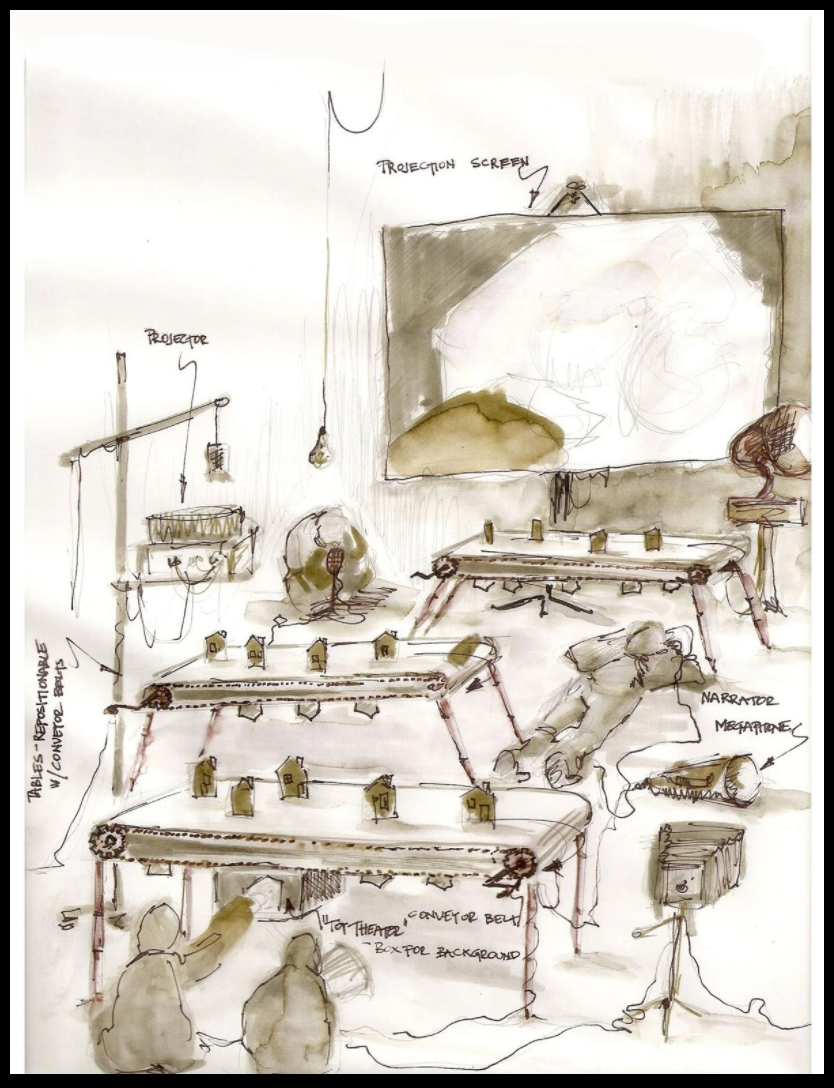 PROJECTION SCREEN
PROJECTOR
TABLES - REPOSITIONABLE
W/ CONVEYOR BELTS
NARRATOR
MEGAPHONE
CONVEYOR BELT
"TOY THEATER"
- BOX FOR BACKGROUND